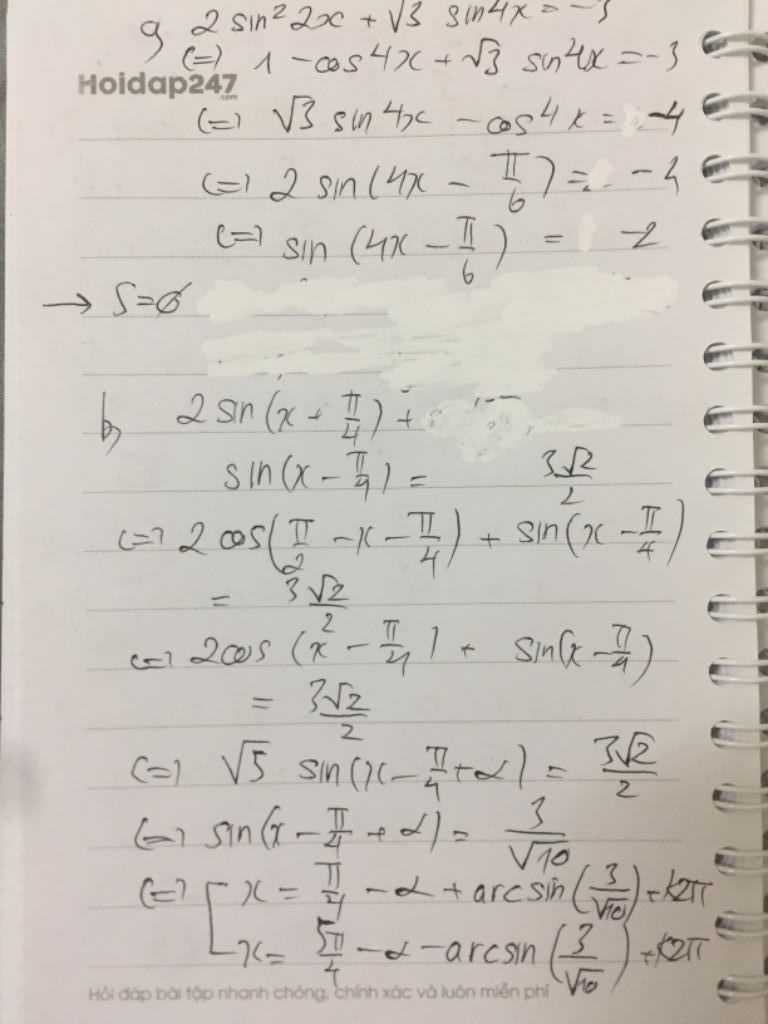 a, 2 sin² 2x + √3 sin4x = -3
(=) 1 - cos4x + √3 sin4x = -3
Hoidap247
.com
(=) √3 sin4x - cos4x = -4
(=) 2 sin(4x - π/6) = -4
(=) sin (4x - π/6) = -2
→ S=∅
b, 2 sin(x + π/4) +
sin(x - π/4) = 3√2/2
(=) 2 cos(π/2 - x - π/4) + sin(x - π/4)
= 3√2/2
(=) 2cos (x - π/4) + sin(x - π/4)
= 3√2/2
(=) √5 sin(x - π/4 + α) = 3√2/2
(=) sin(x - π/4 + α) = 3/√10
(=) [ x = π/4 - α + arcsin(3/√10) + k2π
x = 5π/4 - α - arcsin(3/√10) + k2π
Hỏi đáp bài tập nhanh chóng, chính xác và luôn miễn phí